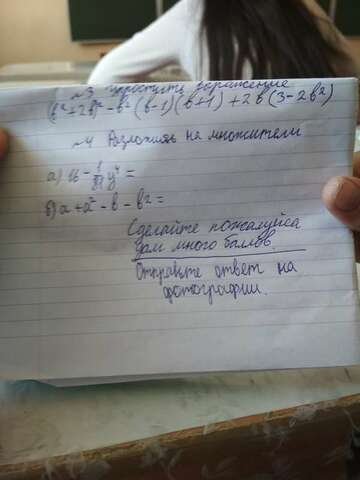 ~3 упростите выражение
(в²+2в)² - в²(в-1)(в+1) + 2в(3-2в²)
~4 Разложить на множители
а) 16 - 1/81 y⁴ =
б) а + а² - в - в² =
Сделайте пожалуйса
дам много баллов.
Отправте ответ на
фотографии.